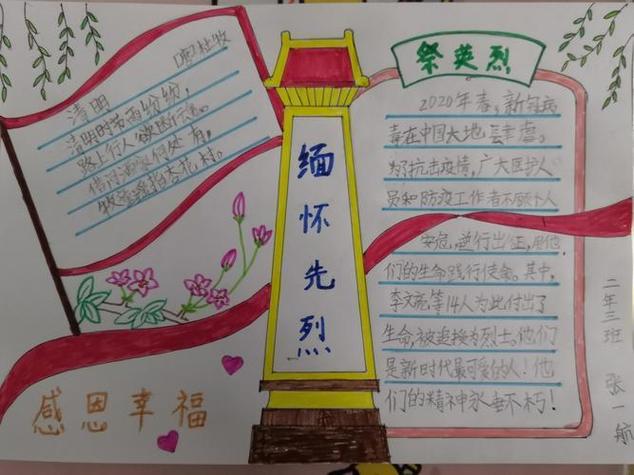 清明
[唐]杜牧
清明时节雨纷纷,
路上行人欲断魂。
借问酒家何处有,
牧童遥指杏花村。
感恩幸福
缅怀先烈
祭英烈
2020年春,新冠病
毒在中国大地肆虐。
为了抗击疫情,广大医护人
员和防疫工作者不顾个人
安危,逆行出征,用他
们的生命践行使命。其中,
李文亮等14人为此付出了
生命,被追授为烈士。他们
是新时代最可爱的人!他
们的精神永垂不朽!
二年三班 张一航